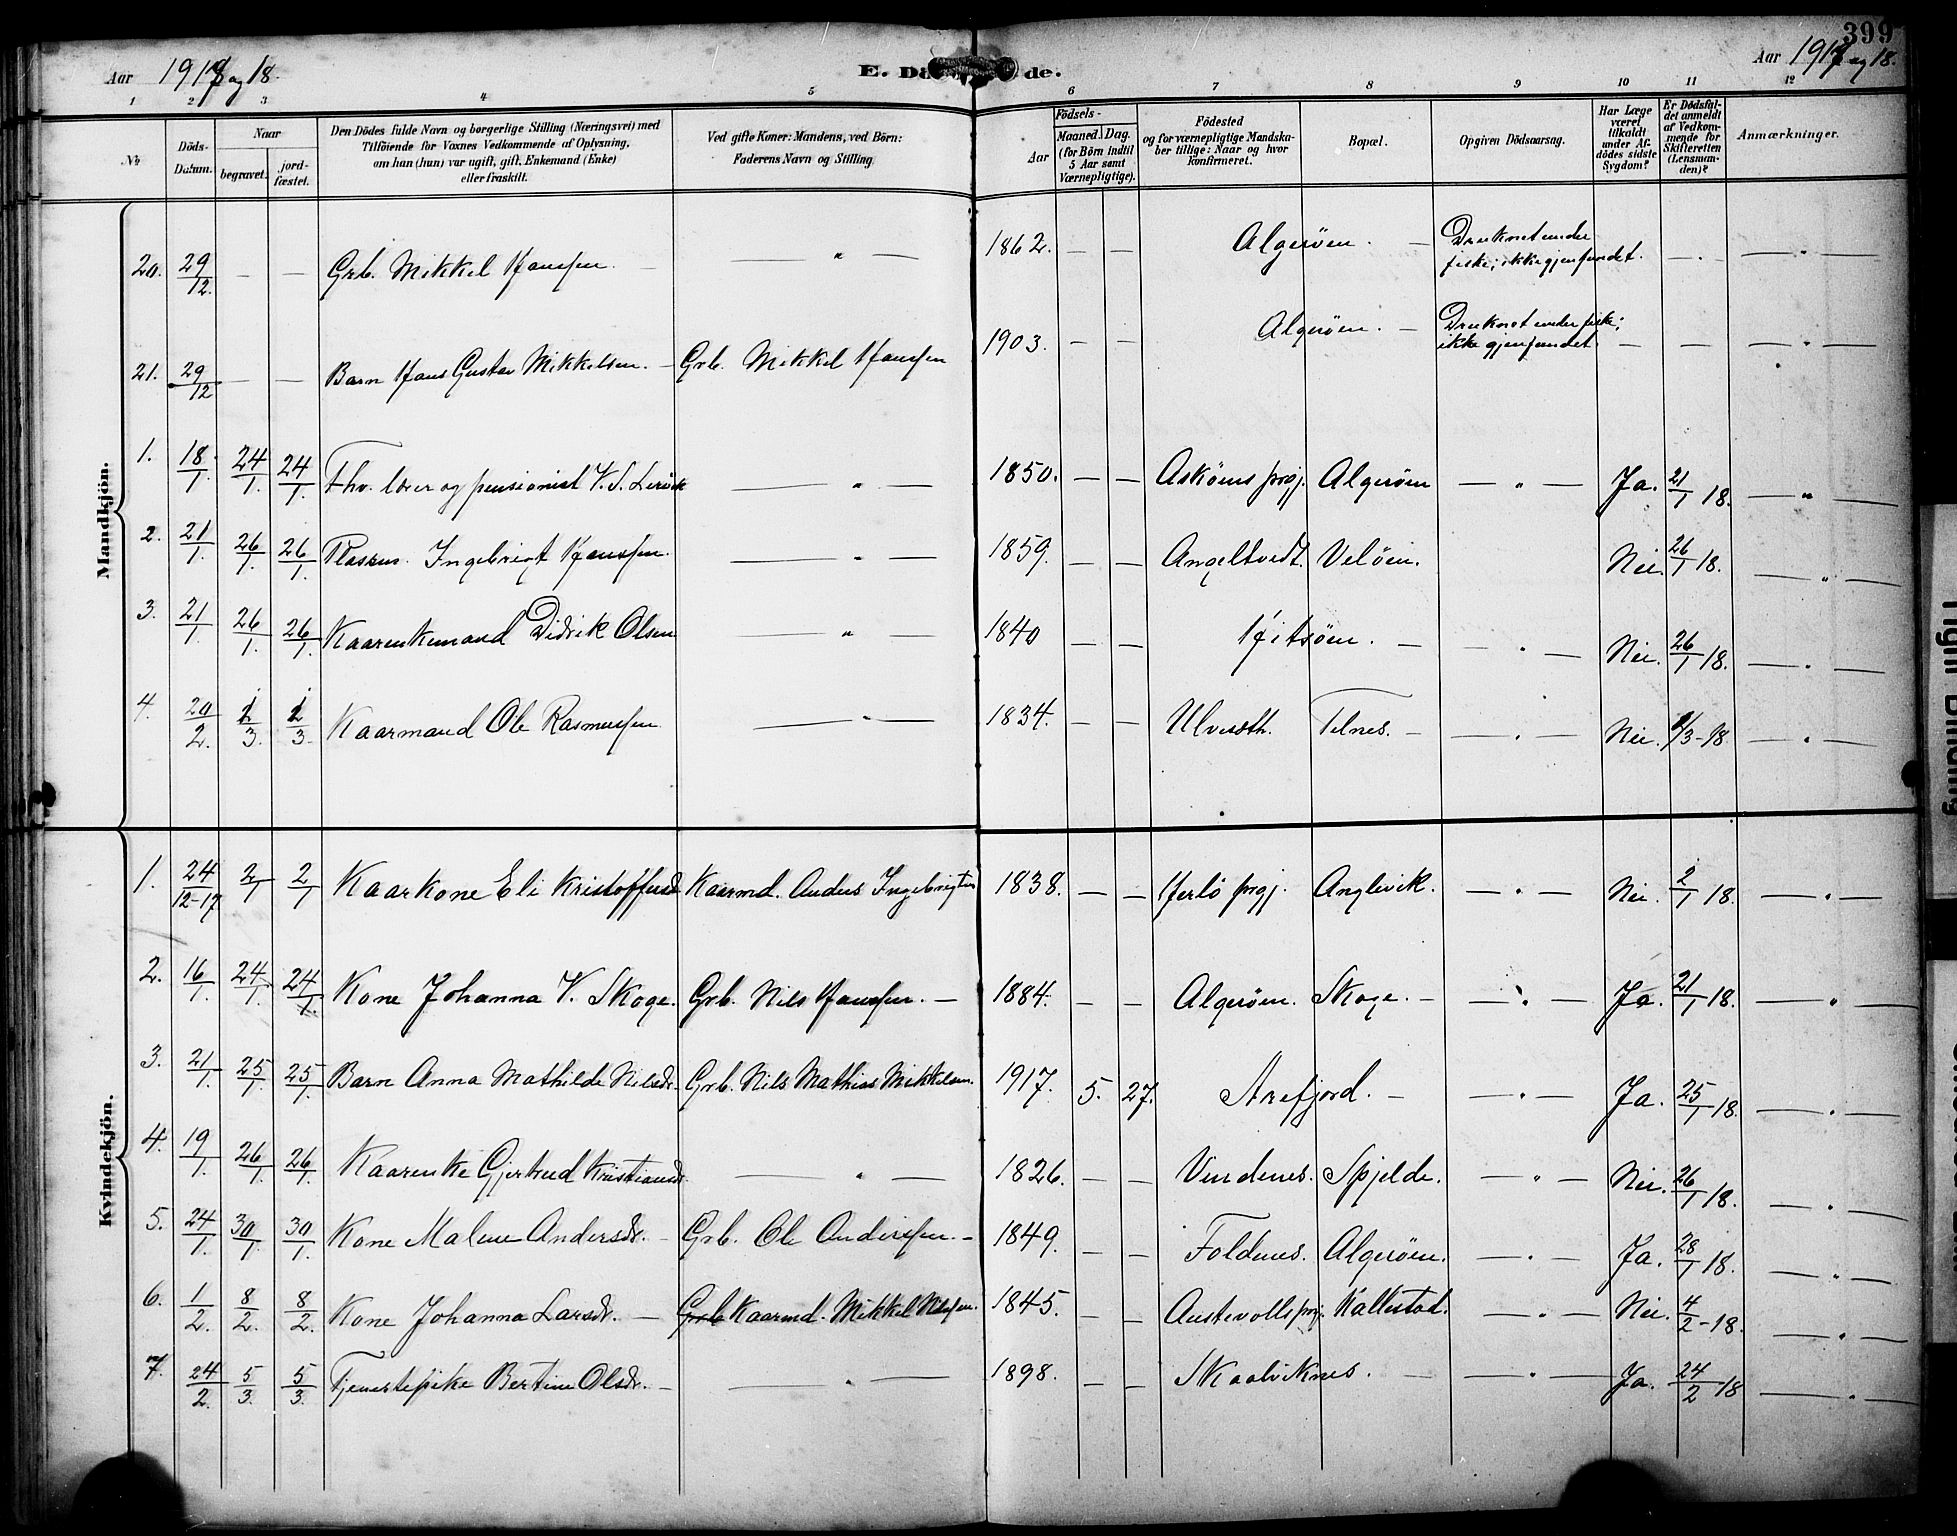 399
Aar 1917 og 18.
E. Dö de.
Aar 1917 og 18.
1 2 3 4 5 6 7 8 9 10 11 12
No
Döds-Datum.
Naar
begravet.
jord-fæstet.
Den Dödes fulde Navn og borgerlige Stilling (Næringsvei) med
Tilföiende for Voxnes Vedkommende af Oplysning,
om han (hun) var ugift, gift, Enkemand (Enke)
eller fraskilt.
Ved gifte Koner: Mandens, ved Börn:
Faderens Navn og Stilling.
Födsels-
Aar
Maaned. Dag.
(for Börn indtil
5 Aar samt
Værnepligtige).
Födested
og for værnepligtige Mandska-
ber tillige: Naar og hvor
konfirmeret.
Bopæl.
Opgiven Dödsaarsag.
Har Læge
været
tilkaldt
under Af-
dödes sidste
Sygdom?
Er Dödsfal-
det anmeldt
af Vedkom-
mende for
Skifteretten
(Lensman-
den)?
Anmærkninger.
Mandkjön.
20. 29/12. — — Grb. Mikkel Hanssen. — " — 1862. — — Algeröen. — Druknet under fiske; ikke gjenfundet. — . — — " —
21. 29/12 — — Barn Hans Gustav Mikkelsen. — Grb. Mikkel Hanssen 1903. — — Algeröen. — Druknet under fiske; ikke gjenfundet. — — — " —
1. 18/1. 24/1. 24/1. Fhv. lærer og pensionist V. S. Leröck — " — 1850. — — Asköens prgj. Algeröen — " — Ja. 21/1 18. — " —
2. 21/1. 26/1. 26/1. Plassm. Ingebrigt Hanssen. — " — 1859. — — Angeltvedt. Velöen. Nei. 26/1 18. — " —
3. 21/1. 26/1. 26/1. Kaarenkemand Didrik Olsen — " — 1840 — — Hitsöen. — — " — Nei. 26/1 18. — " —
4. 20/2. 2/3. 2/3. Kaarmand Ole Rasmussen — " — 1834. — — Ulveseth. Telnes. — — " — Nei. /3-18 — " —
Kvindekjön.
1. 24/12-17 2/1 2/1 Kaarkone Eli Kristoffersd. Kaarmd. Anders Ingebrigtsen 1838. — — Herlö prgj. Anglevik. — " — Nei. 2/1 18. — " —
2. 16/1. 24/1. 24/1. Kone Johanna V. Skoge. Grb. Nils Hanssen. — 1884. — — Algeröen. Skoge. — — " — Ja. 21/1 18. — " —
3. 21/1. 25/1. 25/1. Barn Anna Mathilde Nilsdr. Grb. Nils Mathias Mikkelsen. 1917. 5. 27. Arefjord. — — " — Ja. 25/1 18. — " —
4. 19/1. 26/1. 26/1. Kaarenke Gjertrud Kristiansdr. — " — 1826. — — Vindenes. Spjelde. — " — Nei. 26/1 18. — " —
5. 24/1. 30/1. 30/1. Kone Malene Andersdr. — Grb. Ole Anderssen. — 1849. — — Foldnes. Algeröen. — " — Ja. 28/1 18. — " —
6. 1/2. 8/2. 8/2. Kone Johanna Larsdr. — Grb Kaarmd. Mikkel Nilssen. 1845. — — Austevolls prgj. Kallestad. — " — Nei. 4/2-18. — " —
7. 24/2. 5/3. 5/3. Tjenestepike Bertine Olsdr. — — " — 1898. — — Skaalviknes. — — " — Ja. 24/2 18 — " —